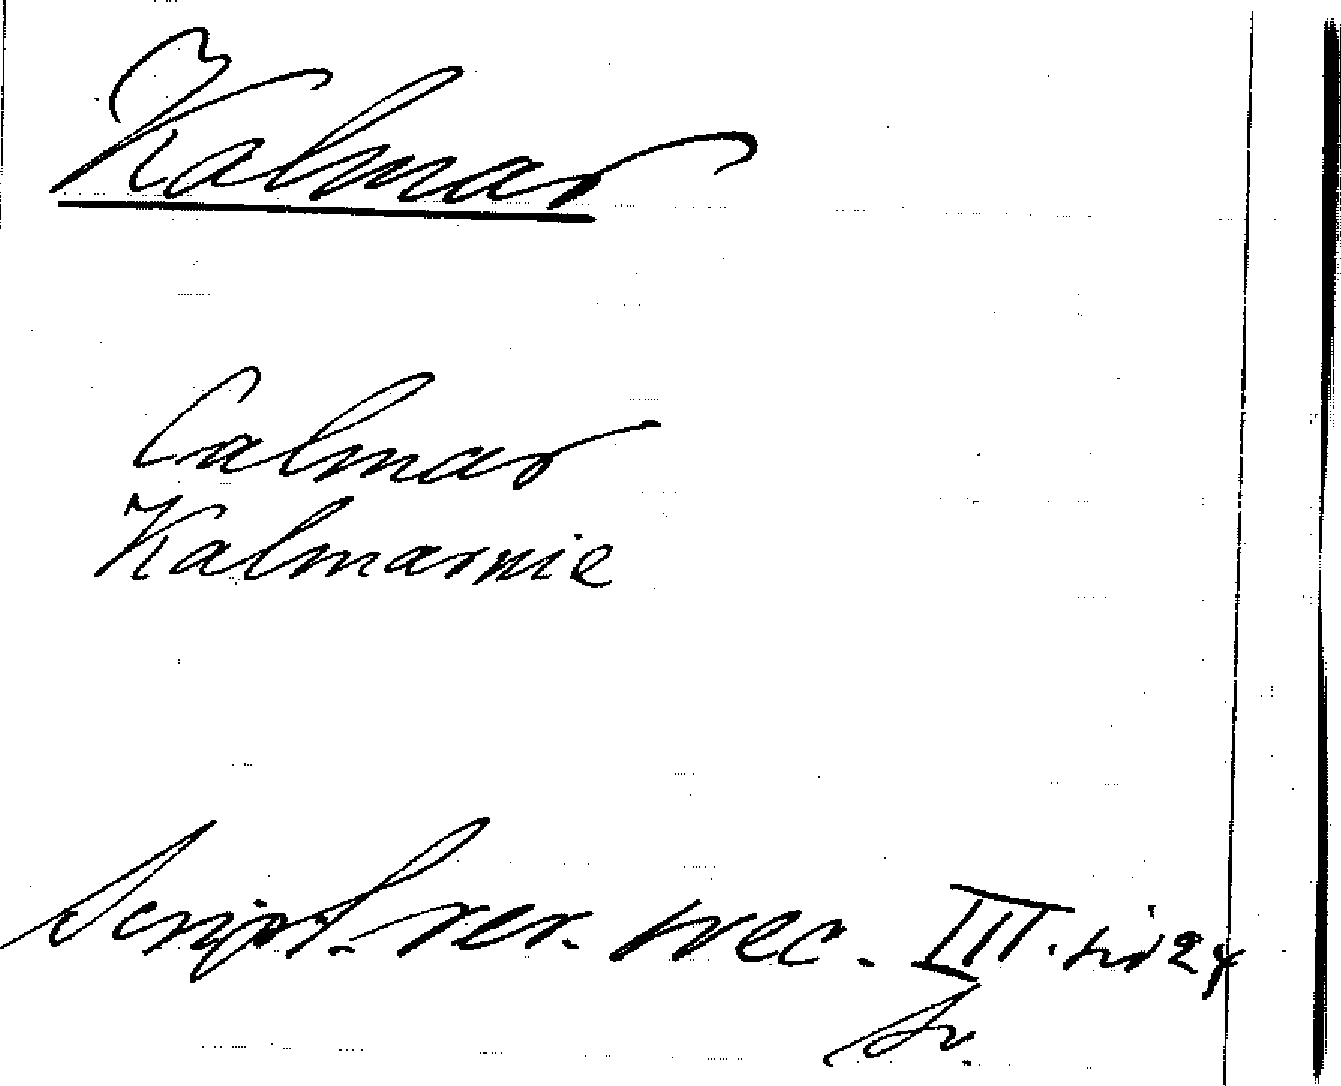 Kalmar
Calmar
Kalmarnie
Script. rer. svec. III. sid 24
Sv.